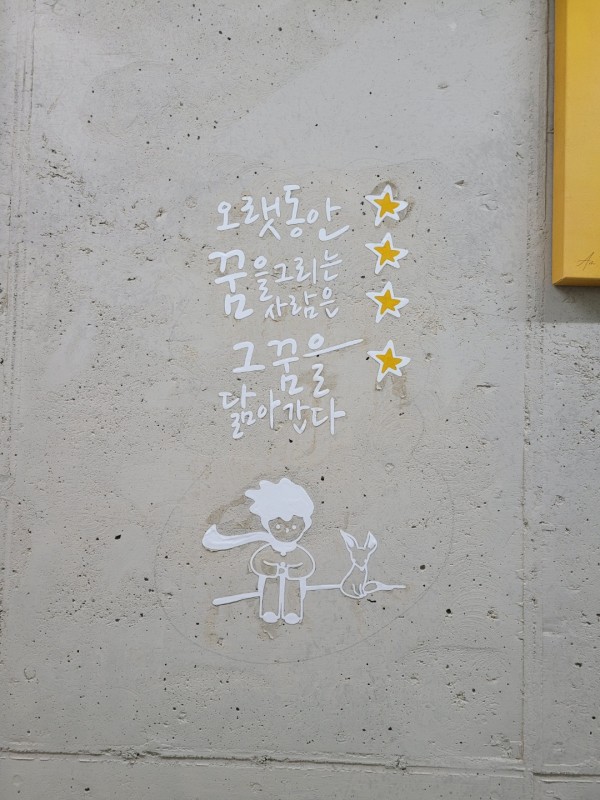 오랫동안
꿈을 그리는
사람은
그 꿈을
닮아간다